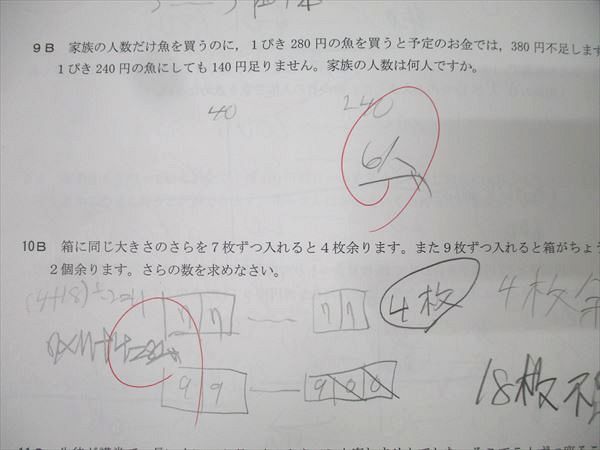 9B 家族の人数だけ魚を買うのに，1ぴき280円の魚を買うと予定のお金では，380円不足しま
1ぴき240円の魚にしても140円足りません。家族の人数は何人ですか。
40 240
6人
10B 箱に同じ大きさのさらを7枚ずつ入れると4枚余ります。また9枚ずつ入れると箱がちょ
2個余ります。さらの数を求めなさい。
(4+18)÷2=11
7 7 7 7 4枚 4枚余
9 9 9 0 0 18枚不